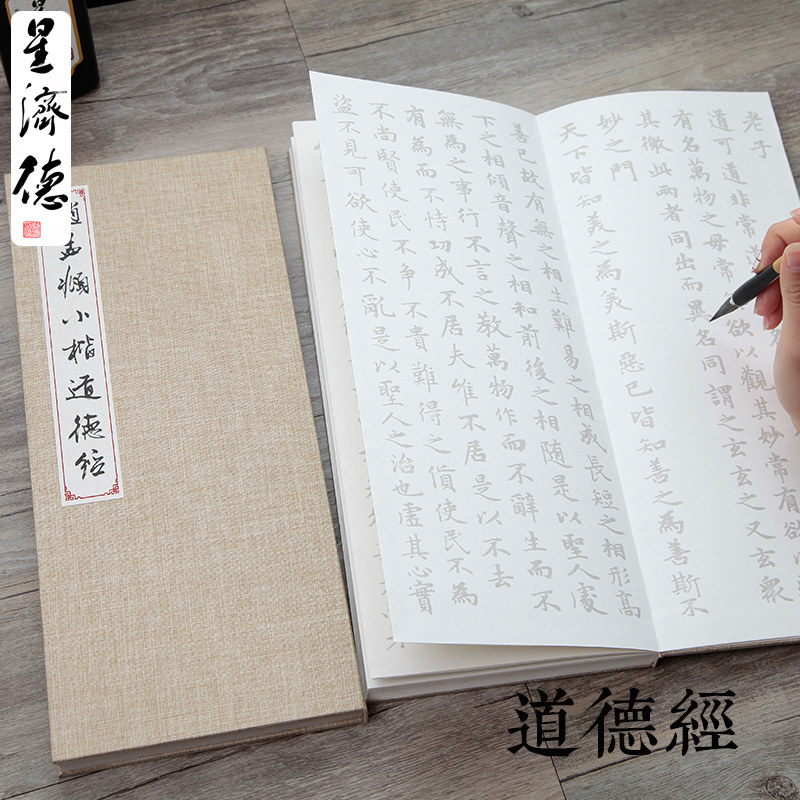 星濟德
趙孟頫小楷道德經
老子
道可道非常道
有名萬物之母常欲以觀其妙常有欲
其徼此兩者同出而異名同謂之玄玄之又玄衆
妙之門
天下皆知美之為美斯惡已皆知善之為善斯不
善已故有無之相生難易之相成長短之相形高
下之相傾音聲之相和前後之相随是以聖人處
無為之事行不言之教萬物作而不辭生而不
有為而不恃功成不居夫惟不居是以不去
不尚賢使民不争不貴難得之貨使民不為
盜不見可欲使心不亂是以聖人之治也虛其心實
道德經